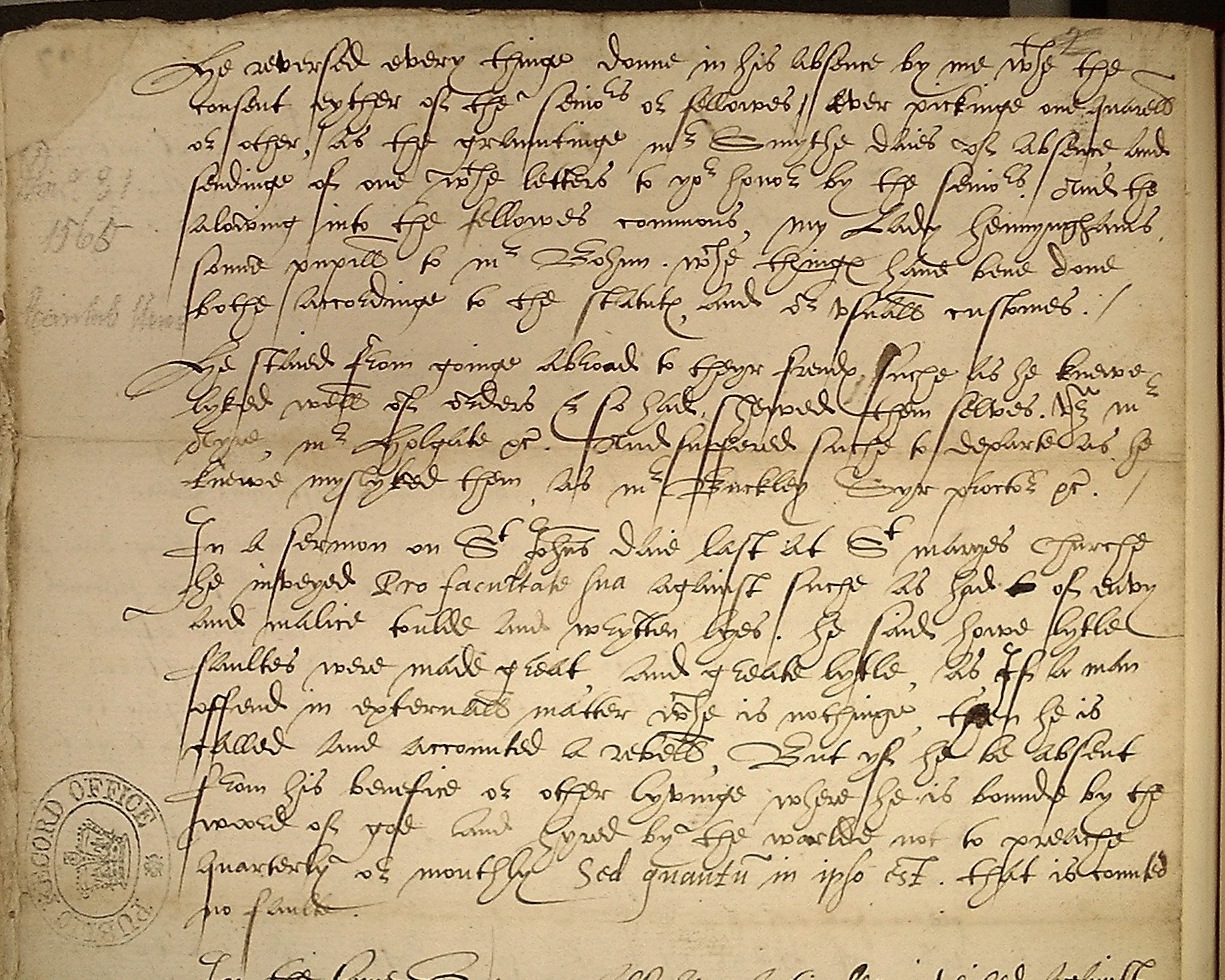 2
He reversed every thinge donne in his absence by me wche the
consent eyther of the seniors or fellowes, Ever pickinge one quarell
or other, as the grauntinge mr Smythe daies of absence and
sendinge of one wche letters to yor honor by the seniors. And the
alowing into the fellowes commons, my Lady Hennynghams
sonne pupill to mr Bohun. wche things have bene done
bothe accordinge to the statuts, and or usuall customes. /
He staied from goinge abroad to theyr frends, suche as he knewe
lyked well of orders & so had shewed them selves. vz mr
mr Holgate &c. And suffered suche to departe as he
knewe myslyked them, as mr Buckley Syr proctor &c. /
In a sermon on St Johns daie last at St maryes Churche
he inveyed Pro facultate sua against suche as had of envy
and malice toulde and wrytten lyes. he said howe lytle
faultes were made great, and greate lytle, as If a man
offend in externall matter wche is nothinge, then he is
called and accounted a rebell, But yf he be absent
from his benefice or other lyvinge where he is bounde by the
woord of god and hyred by the worlde not to preache
quarterly or monthly Sed quantū in ipso est. that is counted
no faulte.
1565
PUBLIC RECORD OFFICE